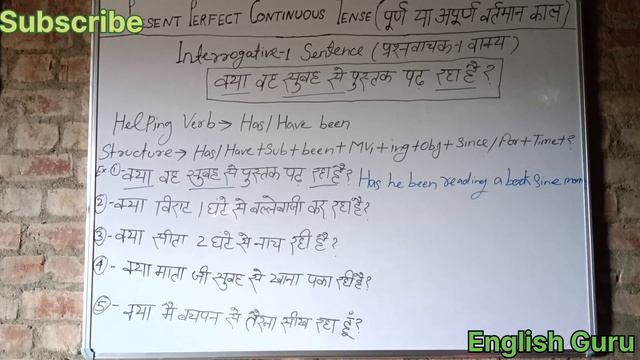 Subscribe
PRESENT PERFECT CONTINUOUS TENSE (पूर्ण या अपूर्ण वर्तमान काल)
Interrogative-1 Sentence (प्रश्नवाचक-1 वाक्य)
क्या वह सुबह से पुस्तक पढ़ रहा है?
Helping Verb → Has/Have been
Structure → Has/Have+Sub+been+MV₁+ing+Obj+Since/For+Time+?
Ex ①- क्या वह सुबह से पुस्तक पढ़ रहा है? Has he been reading a book Sine morn
②- क्या विराट 1 घंटे से बल्लेबाजी कर रहा है?
③- क्या सीता 2 घंटे से नाच रही है?
④- क्या माता जी सुबह से खाना पका रही है?
⑤- क्या मैं बचपन से तैरना सीख रहा हूँ?
English Guru